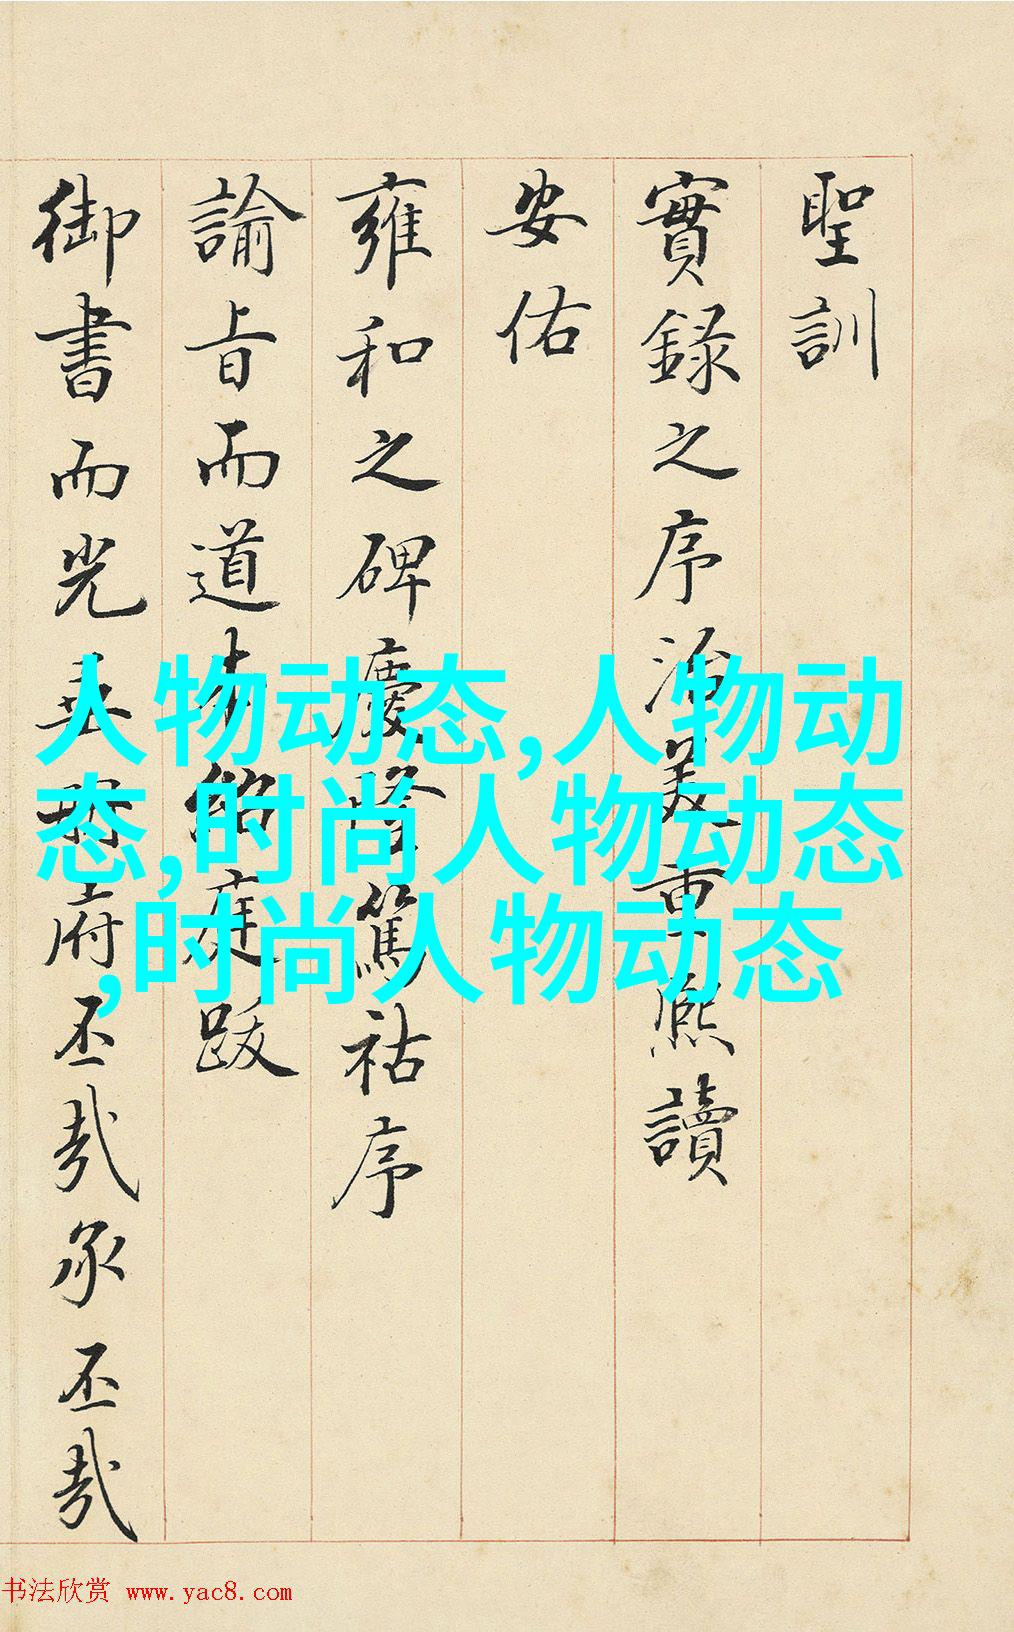 聖訓
實錄之序治美重熙讀
安佑
雍和之碑慶隆篤祜序
諭旨而道紹庭跋
御書而光冊府丕哉承丕哉
人物动态,人物动
态,时尚人物动态
,时尚人物动态
书法欣赏 www.yac8.com